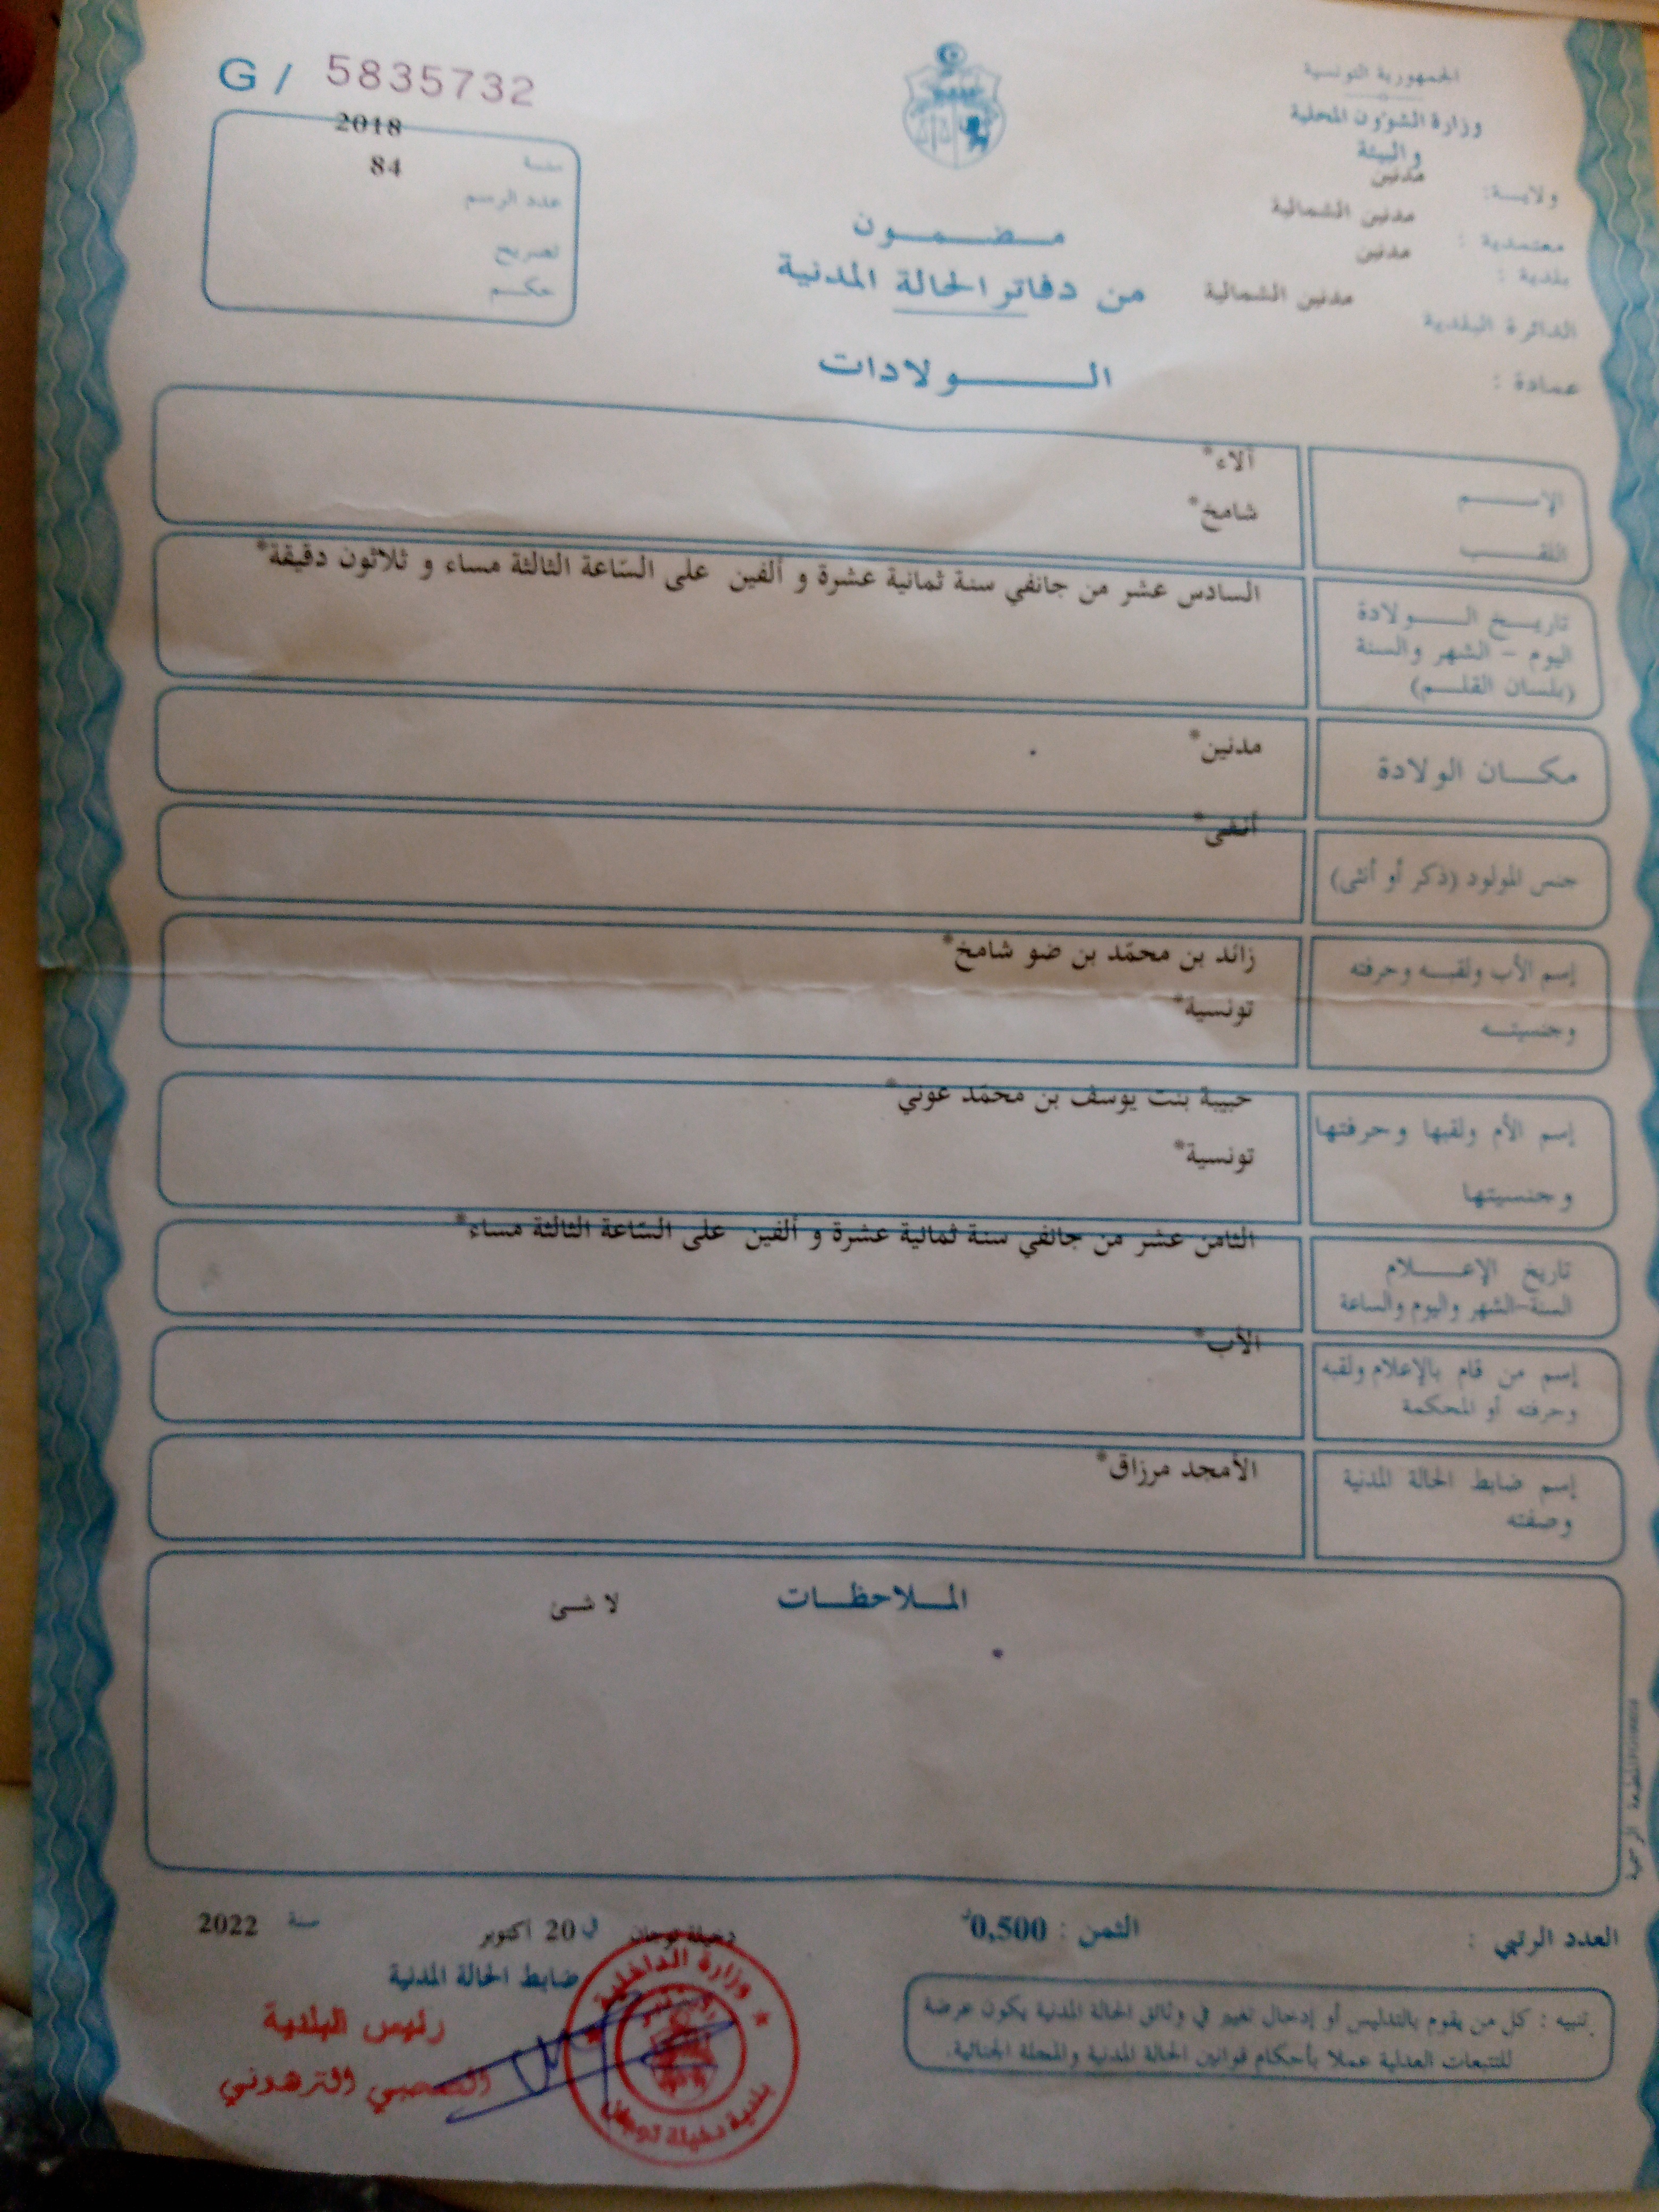 الجمهورية التونسية
وزارة الشؤون المحلية
والبيئة
ولايــة: مدنين
معتمدية : مدنين الشمالية
بلدية : مدنين
الدائرة البلدية مدنين الشمالية
عمادة :
مـضـمـون
من دفاتر الحالة المدنية
الـولادات
G / 5835732
سنة 2018
عدد الرسم 84
تصريح
حكم
الإسـم آلاء*
اللقـب شامخ*
تاريـخ الـولادة
اليوم - الشهر والسنة
(بلسان القلـم)
السادس عشر من جانفي سنة ثمانية عشرة و ألفين على السّاعة الثالثة مساء و ثلاثون دقيقة*
مكـان الولادة مدنين*
جنس المولود (ذكر أو أنثى) أنثى*
إسم الأب ولقبـه وحرفته زائد بن محمّد بن ضو شامخ*
وجنسيتـه تونسية*
إسم الأم ولقبها وحرفتها حبيبة بنت يوسف بن محمّد عوني*
وجنسيتها تونسية*
تاريخ الإعـلام
السنة-الشهر واليوم والساعة
الثامن عشر من جانفي سنة ثمانية عشرة و ألفين على السّاعة الثالثة مساء*
إسم من قام بالإعلام ولقبه
وحرفته أو المحكمة
الأب*
إسم ضابط الحالة المدنية
وصفته
الأمجد مرزاق*
المـلاحظـات لا شئ
المطبعة الرسمية
العدد الرتبي :
الثمن : 0,500د
دخيلة توجان في 20 أكتوبر سنة 2022
ضابط الحالة المدنية
رئيس البلدية
الترهوني
وزارة الداخلية
بلدية دخيلة توجان
تنبيه : كل من يقوم بالتدليس أو إدخال تغيير في وثائق الحالة المدنية يكون عرضة
للتتبعات العدلية عملا بأحكام قوانين الحالة المدنية والمجلة الجنائية.